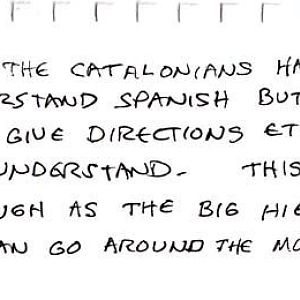 THE CATALONIANS HA
RSTAND SPANISH BUT
GIVE DIRECTIONS ET
UNDERSTAND- THIS
UGH AS THE BIG HIG
AN GO AROUND THE MO